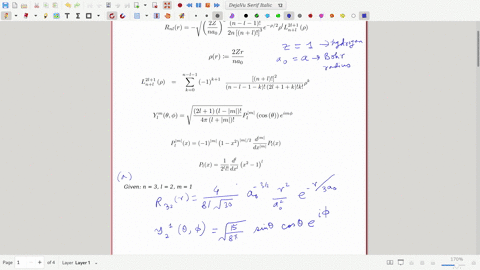 DejaVu Serif Italic 12
R_{nl}(r) = -\sqrt{\left(\frac{2Z}{na_0}\right)^{3} \frac{(n-l-1)!}{2n[(n+l)!]^3}} e^{-\rho/2} \rho^l L_{n+l}^{2l+1}(\rho)
z = 1 → hydrogen
\rho(r) := \frac{2Zr}{na_0}
a_0 = a → Bohr
radius
L_{n+l}^{2l+1}(\rho) = \sum_{k=0}^{n-l-1} (-1)^{k+1} \frac{[(n+l)!]^2}{(n-l-1-k)!(2l+1+k)!k!} \rho^k
Y_l^m(\theta, \phi) = \sqrt{\frac{(2l+1)(l-|m|)!}{4\pi(l+|m|)!}} P_l^{|m|}(\cos(\theta)) e^{im\phi}
P_l^{|m|}(x) = (-1)^{|m|}(1-x^2)^{|m|/2} \frac{d^{|m|}}{dx^{|m|}} P_l(x)
P_l(x) = \frac{1}{2^l l!} \frac{d^l}{dx^l}(x^2-1)^l
(a)
Given: n = 3, l = 2, m = 1
R_{32}(r) = \frac{4}{81\sqrt{30}} a_0^{-3/2} \frac{r^2}{a_0^2} e^{-r/3a_0}
y_2^1(\theta, \phi) = \sqrt{\frac{15}{8\pi}} sinθ cosθ e^{i\phi}
Page 1 of 4 Layer Layer 1
170%